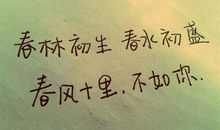 春林初生 春水初盛
春风十里,不如你.